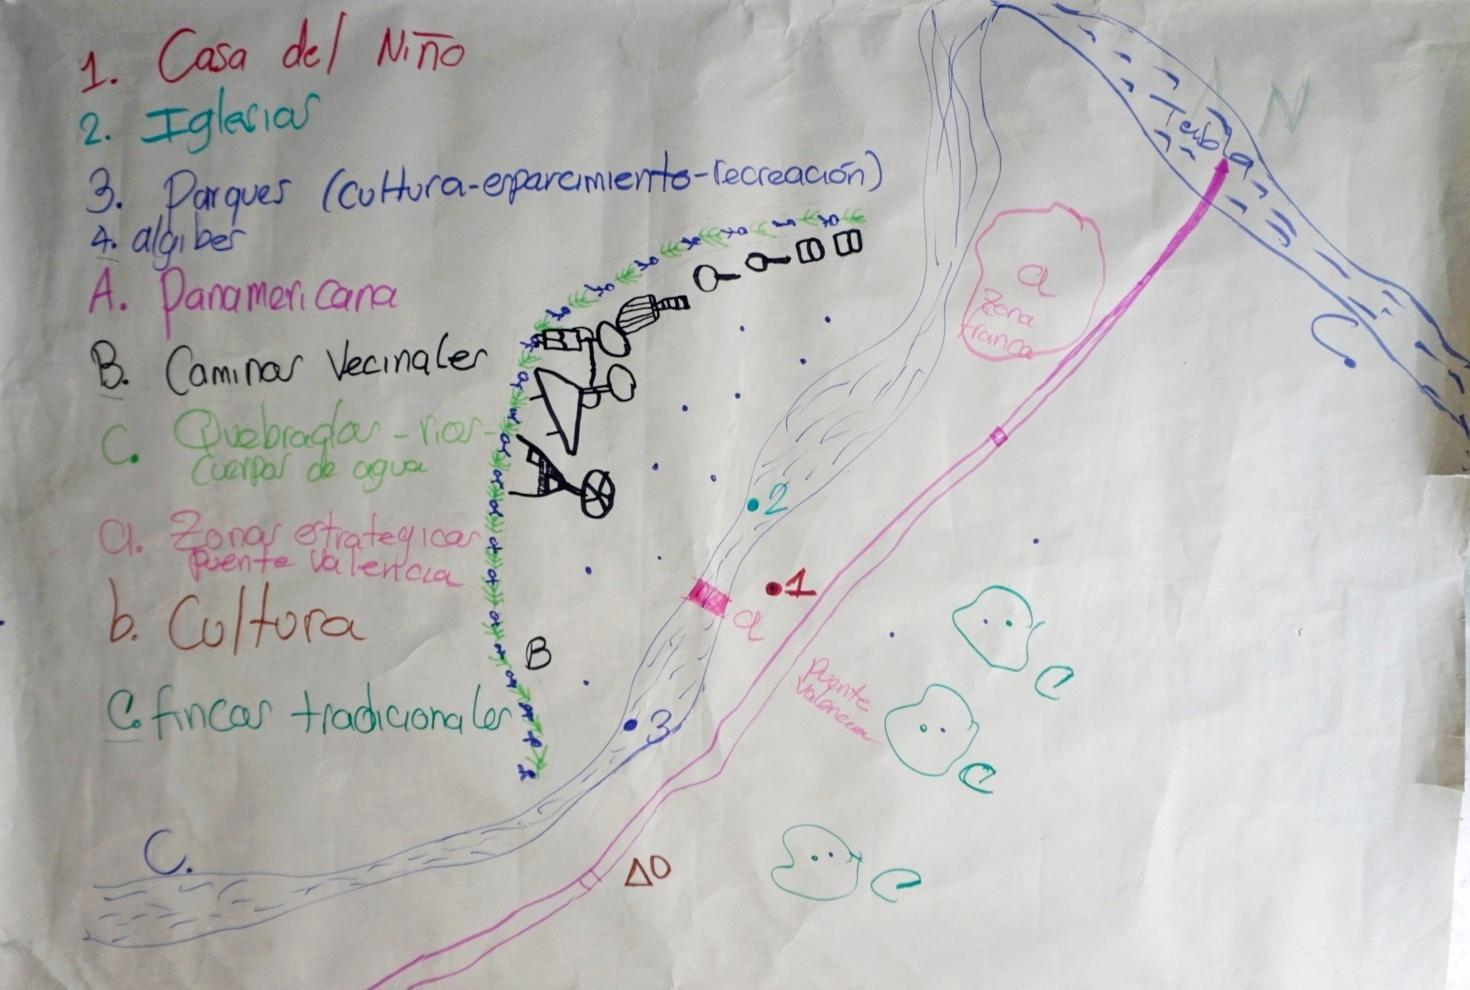 1. Casa del Niño
2. Iglesias
3. Parques (cultura-esparcimiento-recreación)
4. algiber
A. Panamericana
B. Caminos Vecinales
C. Quebradas-rios-
Cuerpos de agua
a. Zonas estrategicas
Puente Valencia
b. Cultura
C. fincas tradicionales
N
a
Zona
franca
C.
2
1
a
B
Puente
Valencia
C
3
C
C.
ΔO
C